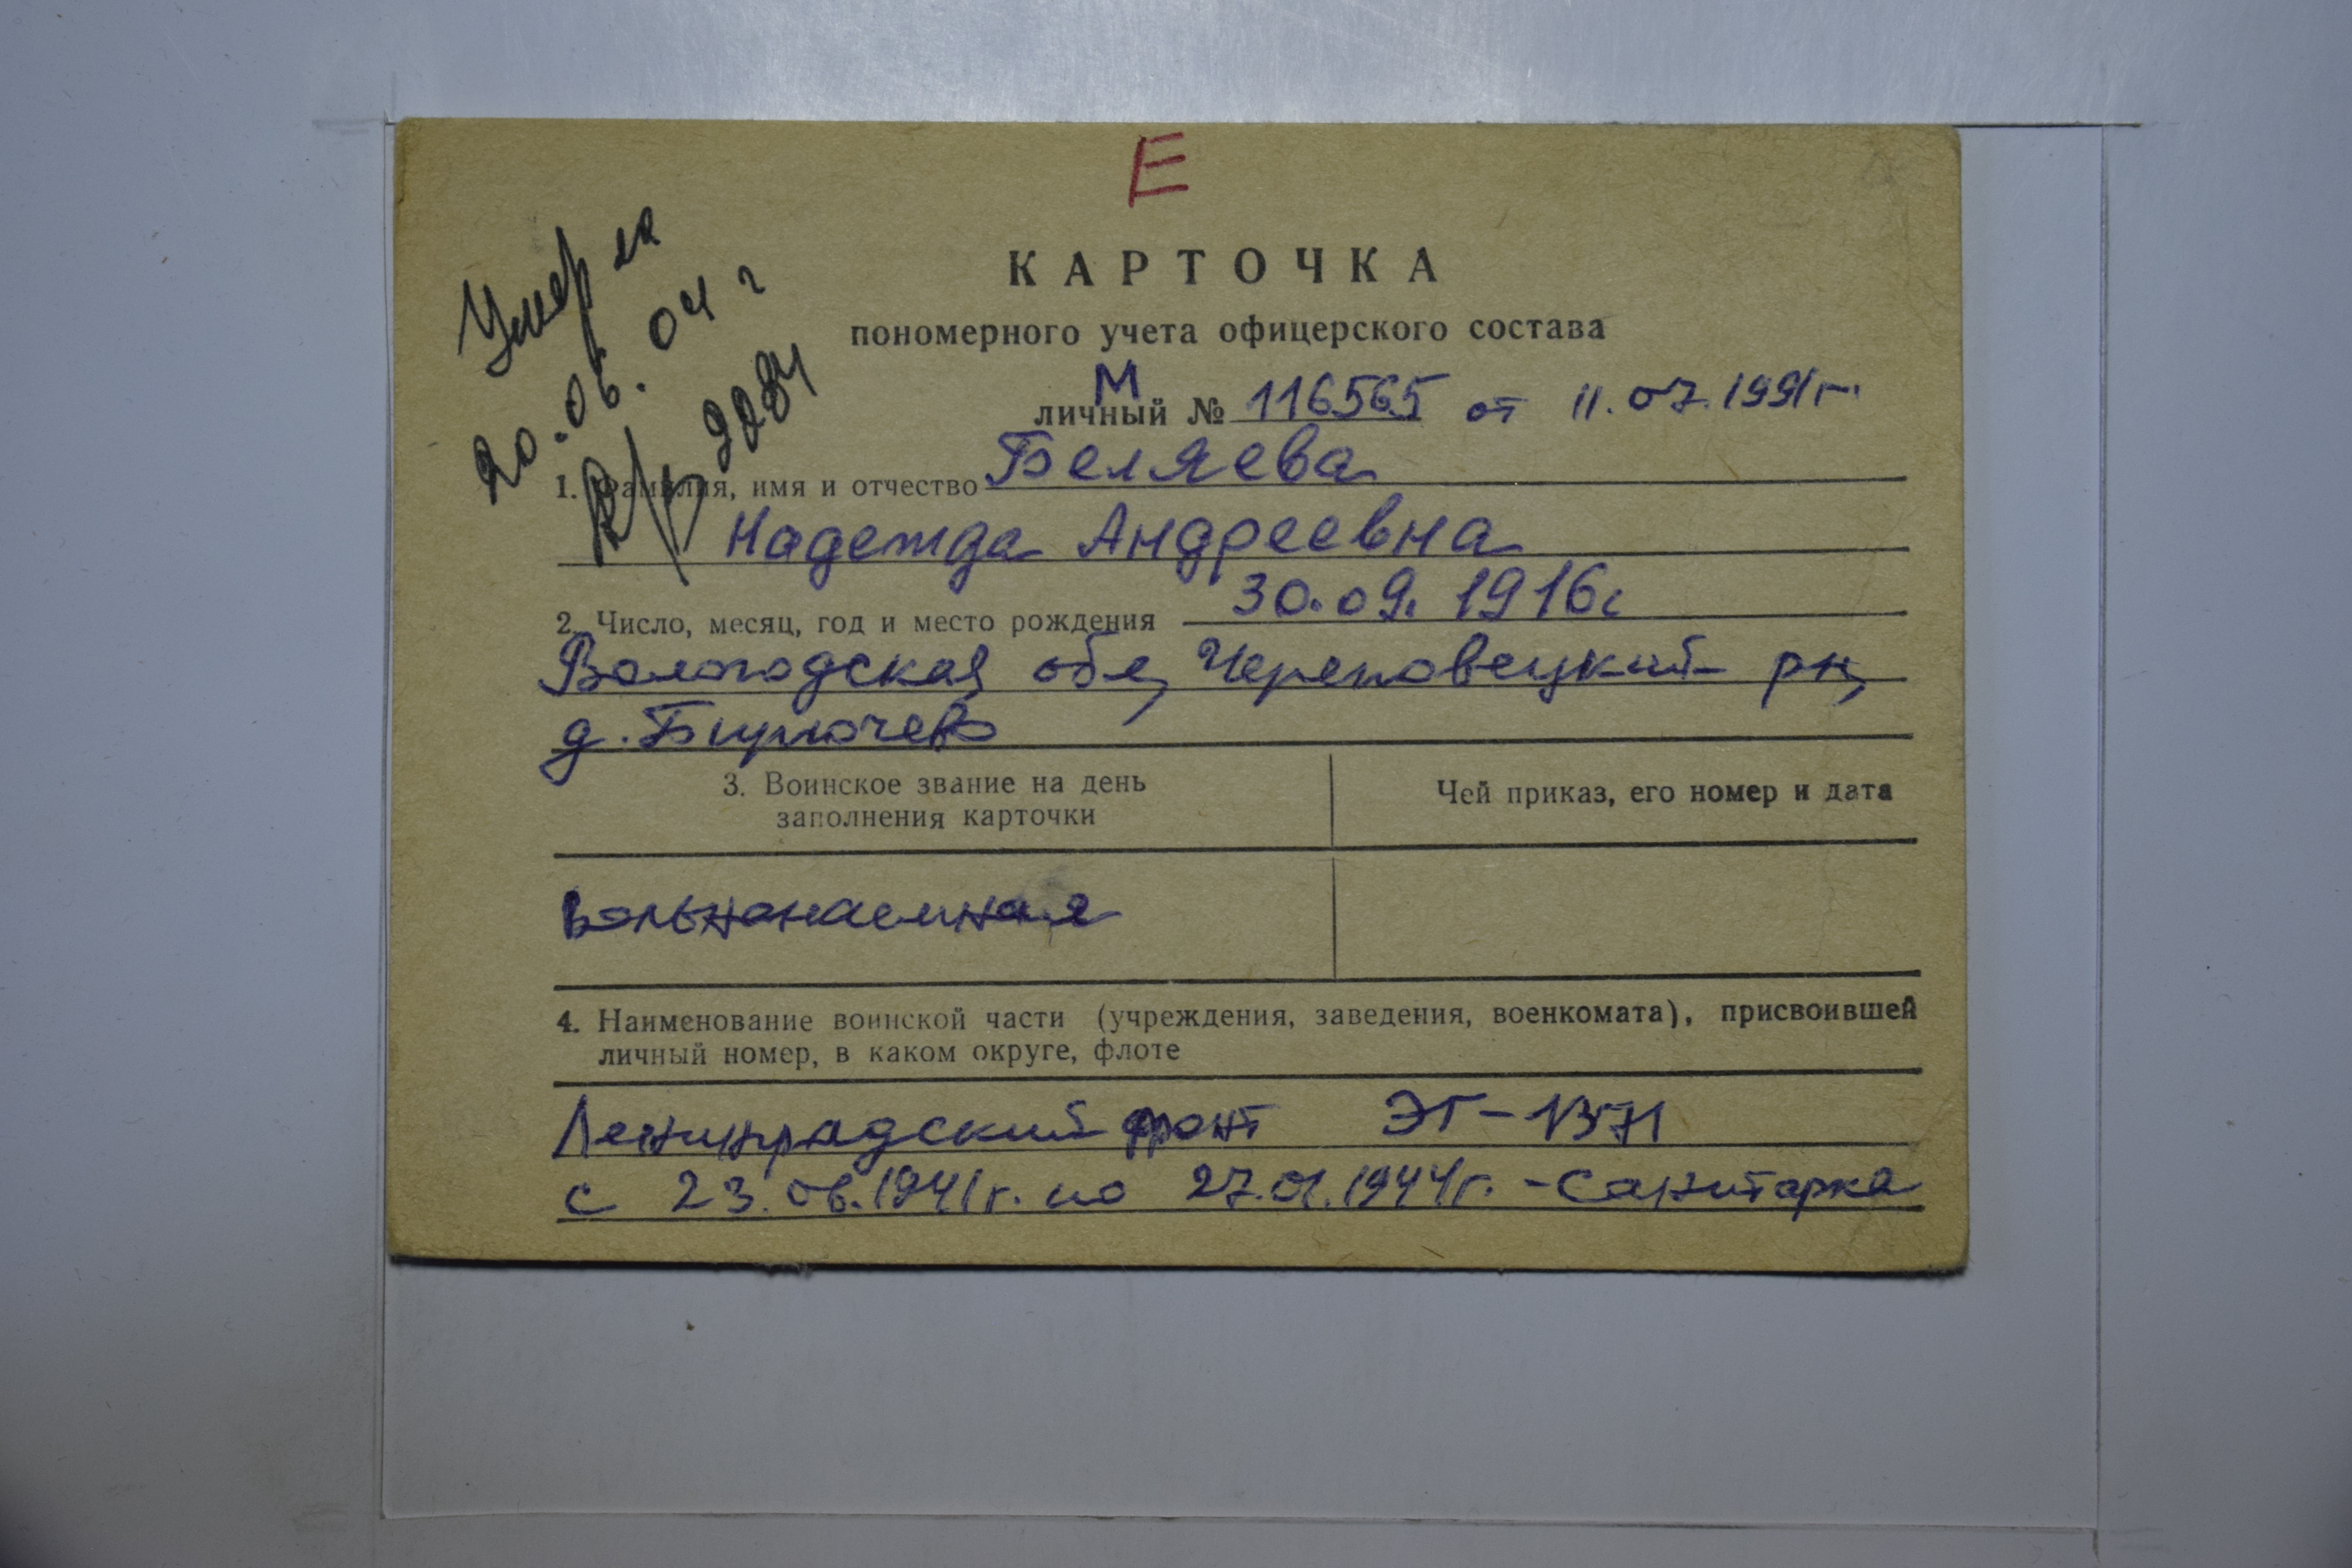 Е
Умерла
20.06.04 г
9284
КАРТОЧКА
пономерного учета офицерского состава
М
личный № 116565 от 11.07.1991г.
1. Фамилия, имя и отчество Беляева
Надежда Андреевна
2. Число, месяц, год и место рождения 30.09.1916г
Вологодская обл, Череповецкий рн,
д. Бирючево
3. Воинское звание на день
заполнения карточки
Чей приказ, его номер и дата
вольнонаемная
4. Наименование воинской части (учреждения, заведения, военкомата), присвоившей
личный номер, в каком округе, флоте
Ленинградский фронт ЭГ-1371
с 23.06.1941г. по 27.01.1944г. - санитарка